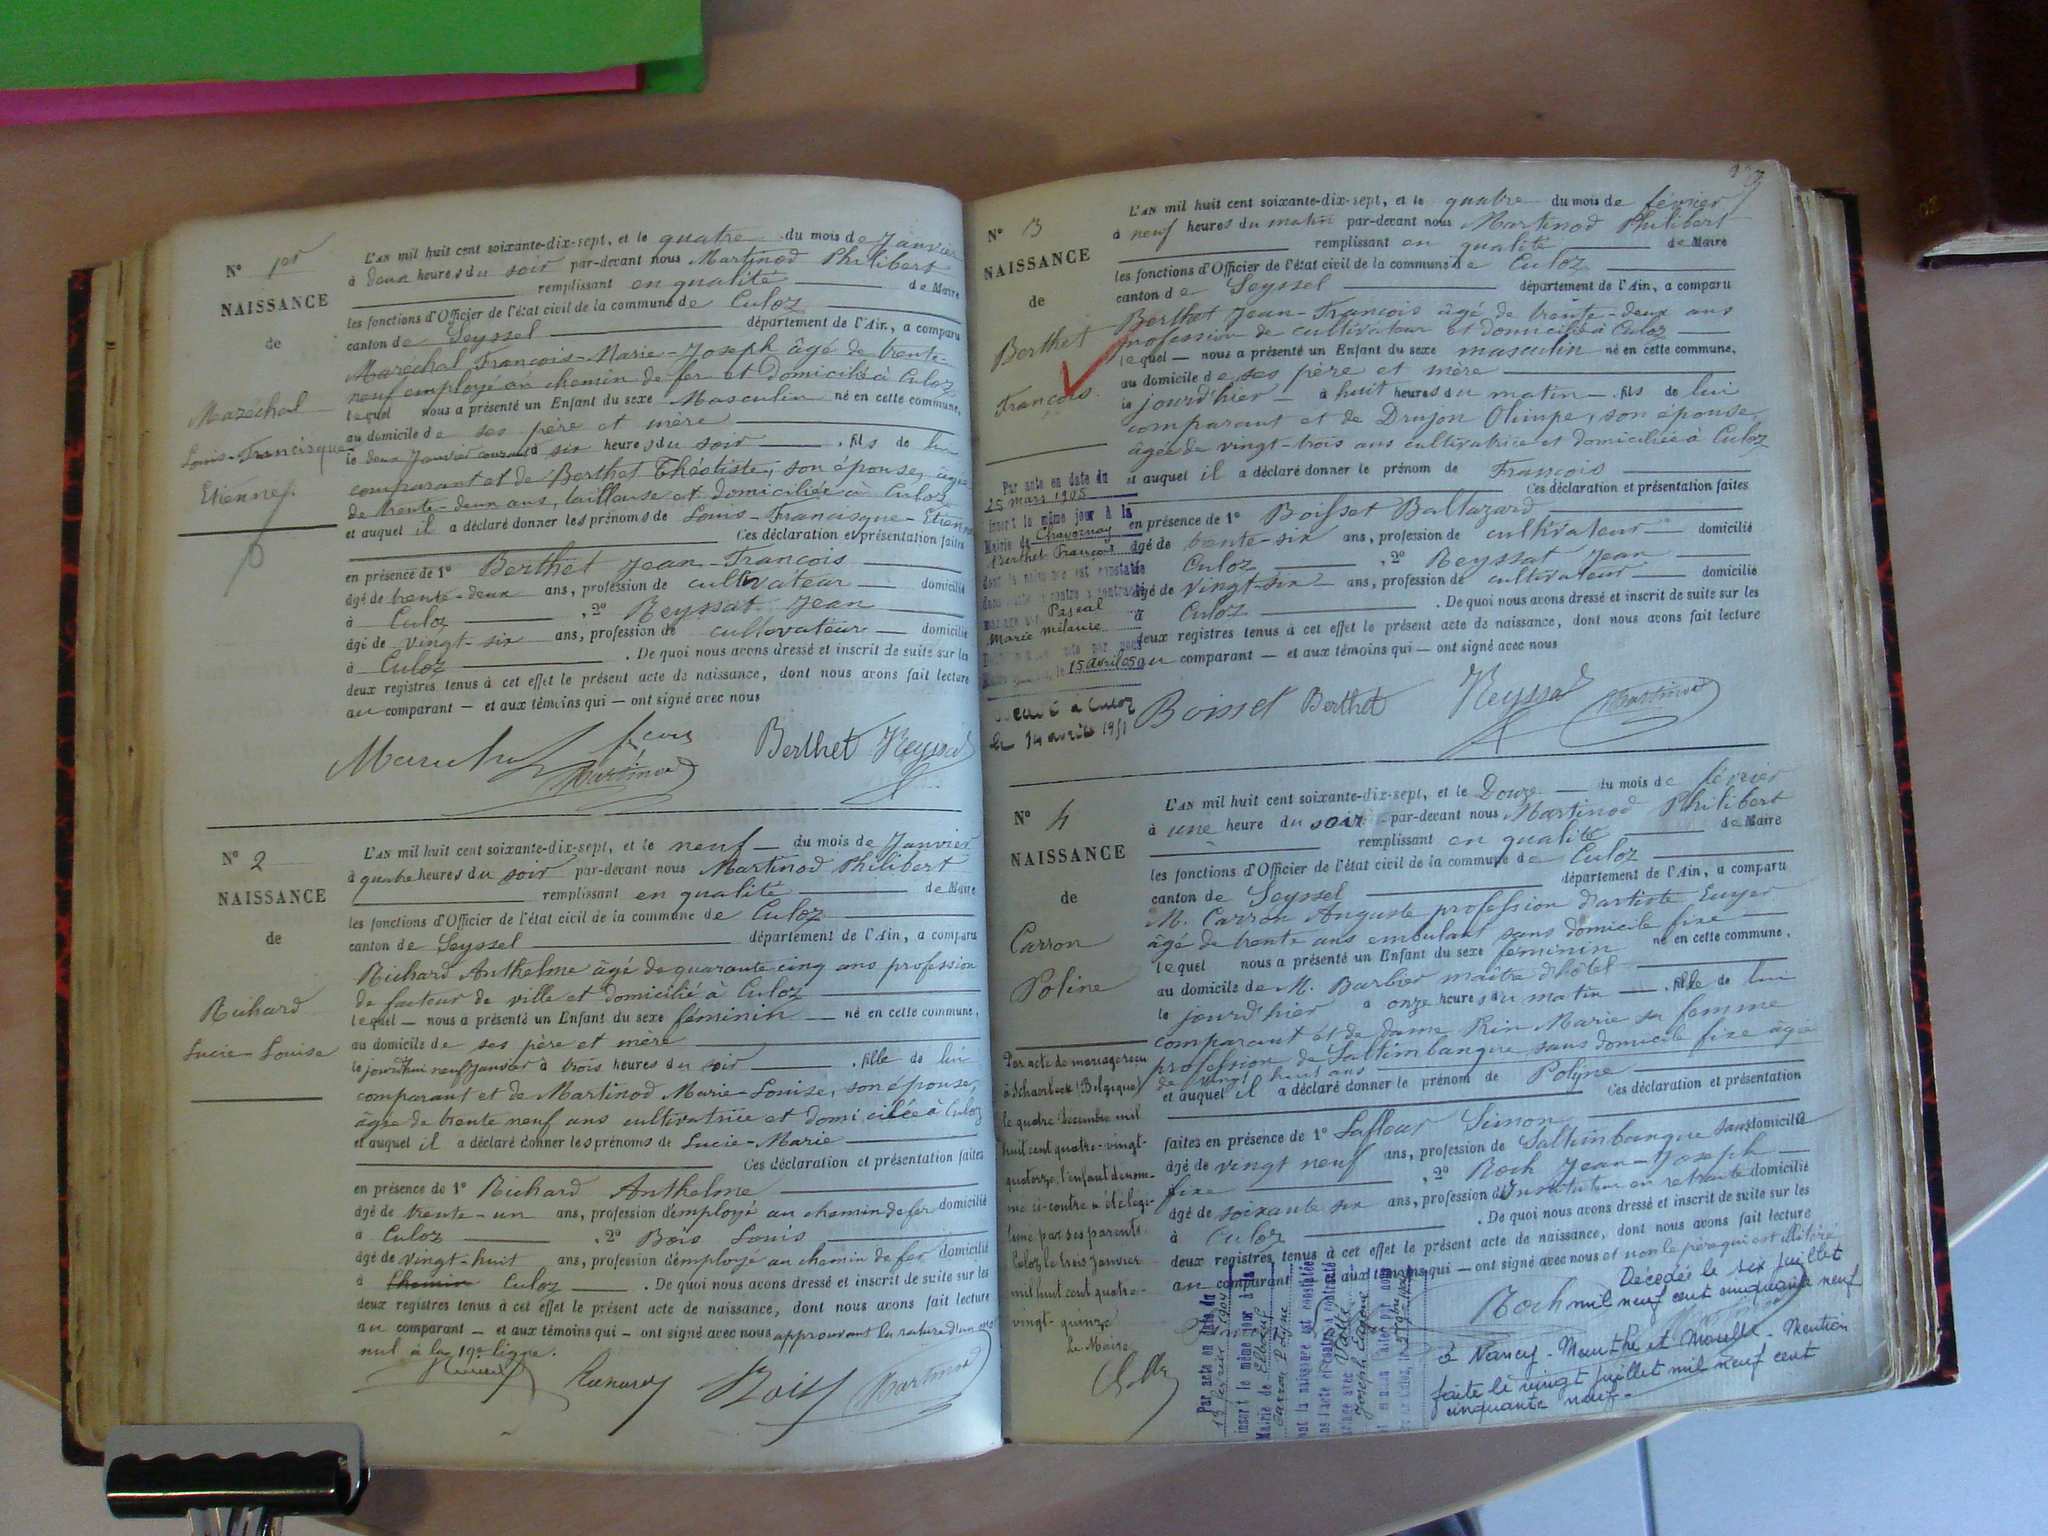 N° 1er
NAISSANCE
de
Maréchal
Louis-Francisque
Etienne
L'AN mil huit cent soixante-dix-sept, et le quatre du mois de Janvier
à deux heures du soir par-devant nous Martinod Philibert
remplissant en qualité de Maire
les fonctions d'Officier de l'état civil de la commune de Culoz
canton de Seyssel département de l'Ain, a comparu
Maréchal François-Marie-Joseph âgé de trente-
neuf employé au chemin de fer et domicilié à Culoz
lequel nous a présenté un Enfant du sexe Masculin né en cette commune,
au domicile de ses père et mère
le deux Janvier courant à six heures du soir, fils de lui
comparant et de Berthet Théotiste, son épouse, âgée
de trente-deux ans, tailleuse et domiciliée à Culoz
et auquel il a déclaré donner les prénoms de Louis-Francisque-Etienne
Ces déclaration et présentation faites
en présence de 1° Berthet Jean-François
âgé de trente-deux ans, profession de cultivateur domicilié
à Culoz, 2° Reyssat Jean
âgé de vingt-six ans, profession de cultivateur domicilié
à Culoz. De quoi nous avons dressé et inscrit de suite sur les
deux registres tenus à cet effet le présent acte de naissance, dont nous avons fait lecture
au comparant — et aux témoins qui — ont signé avec nous
Berthet Reyssat
Martinod
N° 2
NAISSANCE
de
Richard
Lucie-Louise
L'AN mil huit cent soixante-dix-sept, et le neuf du mois de Janvier
à quatre heures du soir par-devant nous Martinod Philibert
remplissant en qualité de Maire
les fonctions d'Officier de l'état civil de la commune de Culoz
canton de Seyssel département de l'Ain, a comparu
Richard Anthelme âgé de quarante cinq ans profession
de facteur de ville et domicilié à Culoz
lequel — nous a présenté un Enfant du sexe féminin né en cette commune,
au domicile de ses père et mère
le jourd'hui neuf Janvier à trois heures du soir, fille de lui
comparant et de Martinod Marie-Louise, son épouse,
âgée de trente neuf ans cultivatrice et domiciliée à Culoz
et auquel il a déclaré donner les prénoms de Lucie-Marie
Ces déclaration et présentation faites
en présence de 1° Richard Anthelme
âgé de trente-un ans, profession d'employé au chemin de fer domicilié
à Culoz, 2° Bois Louis
âgé de vingt-huit ans, profession d'employé au chemin de fer domicilié
à Chemin Culoz. De quoi nous avons dressé et inscrit de suite sur les
deux registres tenus à cet effet le présent acte de naissance, dont nous avons fait lecture
au comparant — et aux témoins qui — ont signé avec nous approuvant la rature d'un mot
nul à la 19e ligne.
Martinod
N° 3
NAISSANCE
de
Berthet
François
L'AN mil huit cent soixante-dix-sept, et le quatre du mois de février
à neuf heures du matin par-devant nous Martinod Philibert
remplissant en qualité de Maire
les fonctions d'Officier de l'état civil de la commune de Culoz
canton de Seyssel département de l'Ain, a comparu
Berthet Jean-François âgé de trente-deux ans
profession de cultivateur et domicilié à Culoz
lequel — nous a présenté un Enfant du sexe masculin né en cette commune,
au domicile de ses père et mère
le jourd'hier à huit heures du matin, fils de lui
comparant et de Drujon Olimpe, son épouse,
âgée de vingt-trois ans cultivatrice et domiciliée à Culoz
et auquel il a déclaré donner le prénom de François
Ces déclaration et présentation faites
en présence de 1° Boisset Baltazard
âgé de trente-six ans, profession de cultivateur domicilié
à Culoz, 2° Reyssat Jean
âgé de vingt-six ans, profession de cultivateur domicilié
à Culoz. De quoi nous avons dressé et inscrit de suite sur les
deux registres tenus à cet effet le présent acte de naissance, dont nous avons fait lecture
au comparant — et aux témoins qui — ont signé avec nous
Par acte en date du
25 mars 1905
inscrit le même jour à la
Mairie de Chavornay
Berthet François
dont la naissance est constatée
dans l'acte ci-contre a contracté
mariage avec Pascal
Marie mélanie
15 avril 05
à Culoz
le 14 avril 1951
Boisset Berthet Reyssat Martinod
N° 4
NAISSANCE
de
Carron
Poline
L'AN mil huit cent soixante-dix-sept, et le Douze du mois de février
à une heure du soir par-devant nous Martinod Philibert
remplissant en qualité de Maire
les fonctions d'Officier de l'état civil de la commune de Culoz
canton de Seyssel département de l'Ain, a comparu
M. Carron Auguste profession d'artiste Ecuyer
âgé de trente ans embulant sans domicile fixe
lequel nous a présenté un Enfant du sexe féminin né en cette commune,
au domicile de M. Barbier maître d'hôtel
le jourd'hier à onze heures du matin, fille de lui
comparant et de dame Rin Marie sa femme
profession de Saltimbanque sans domicile fixe âgée
de vingt huit ans
et auquel il a déclaré donner le prénom de Poline
Ces déclaration et présentation
faites en présence de 1° Lafleur Simon
âgé de vingt neuf ans, profession de Saltimbanque sans domicile
fixe, 2° Roch Jean-Joseph
âgé de soixante six ans, profession d'Instituteur en retraite domicilié
à Culoz. De quoi nous avons dressé et inscrit de suite sur les
deux registres tenus à cet effet le présent acte de naissance, dont nous avons fait lecture
au comparant et aux témoins qui — ont signé avec nous et non le père qui est illitéré
Par acte de mariage reçu
à Schaerbeek (Belgique)
le quatre Décembre mil
huit cent quatre-vingt-
quatorze, l'enfant dénom-
mé ci-contre a été légi-
timé par ses parents.
Culoz, le trois Janvier
mil huit cent quatre-
vingt-quinze
Le Maire
Par acte en date du
inscrit le même jour à la
Mairie de
Carron Polyne
dont la naissance est constatée
dans l'acte ci-contre a contracté
mariage avec
Joseph Eugène
Roch
Décédée le six juillet
mil neuf cent cinquante neuf
à Nancy - Meurthe et Moselle - Mention
faite le vingt juillet mil neuf cent
cinquante neuf.